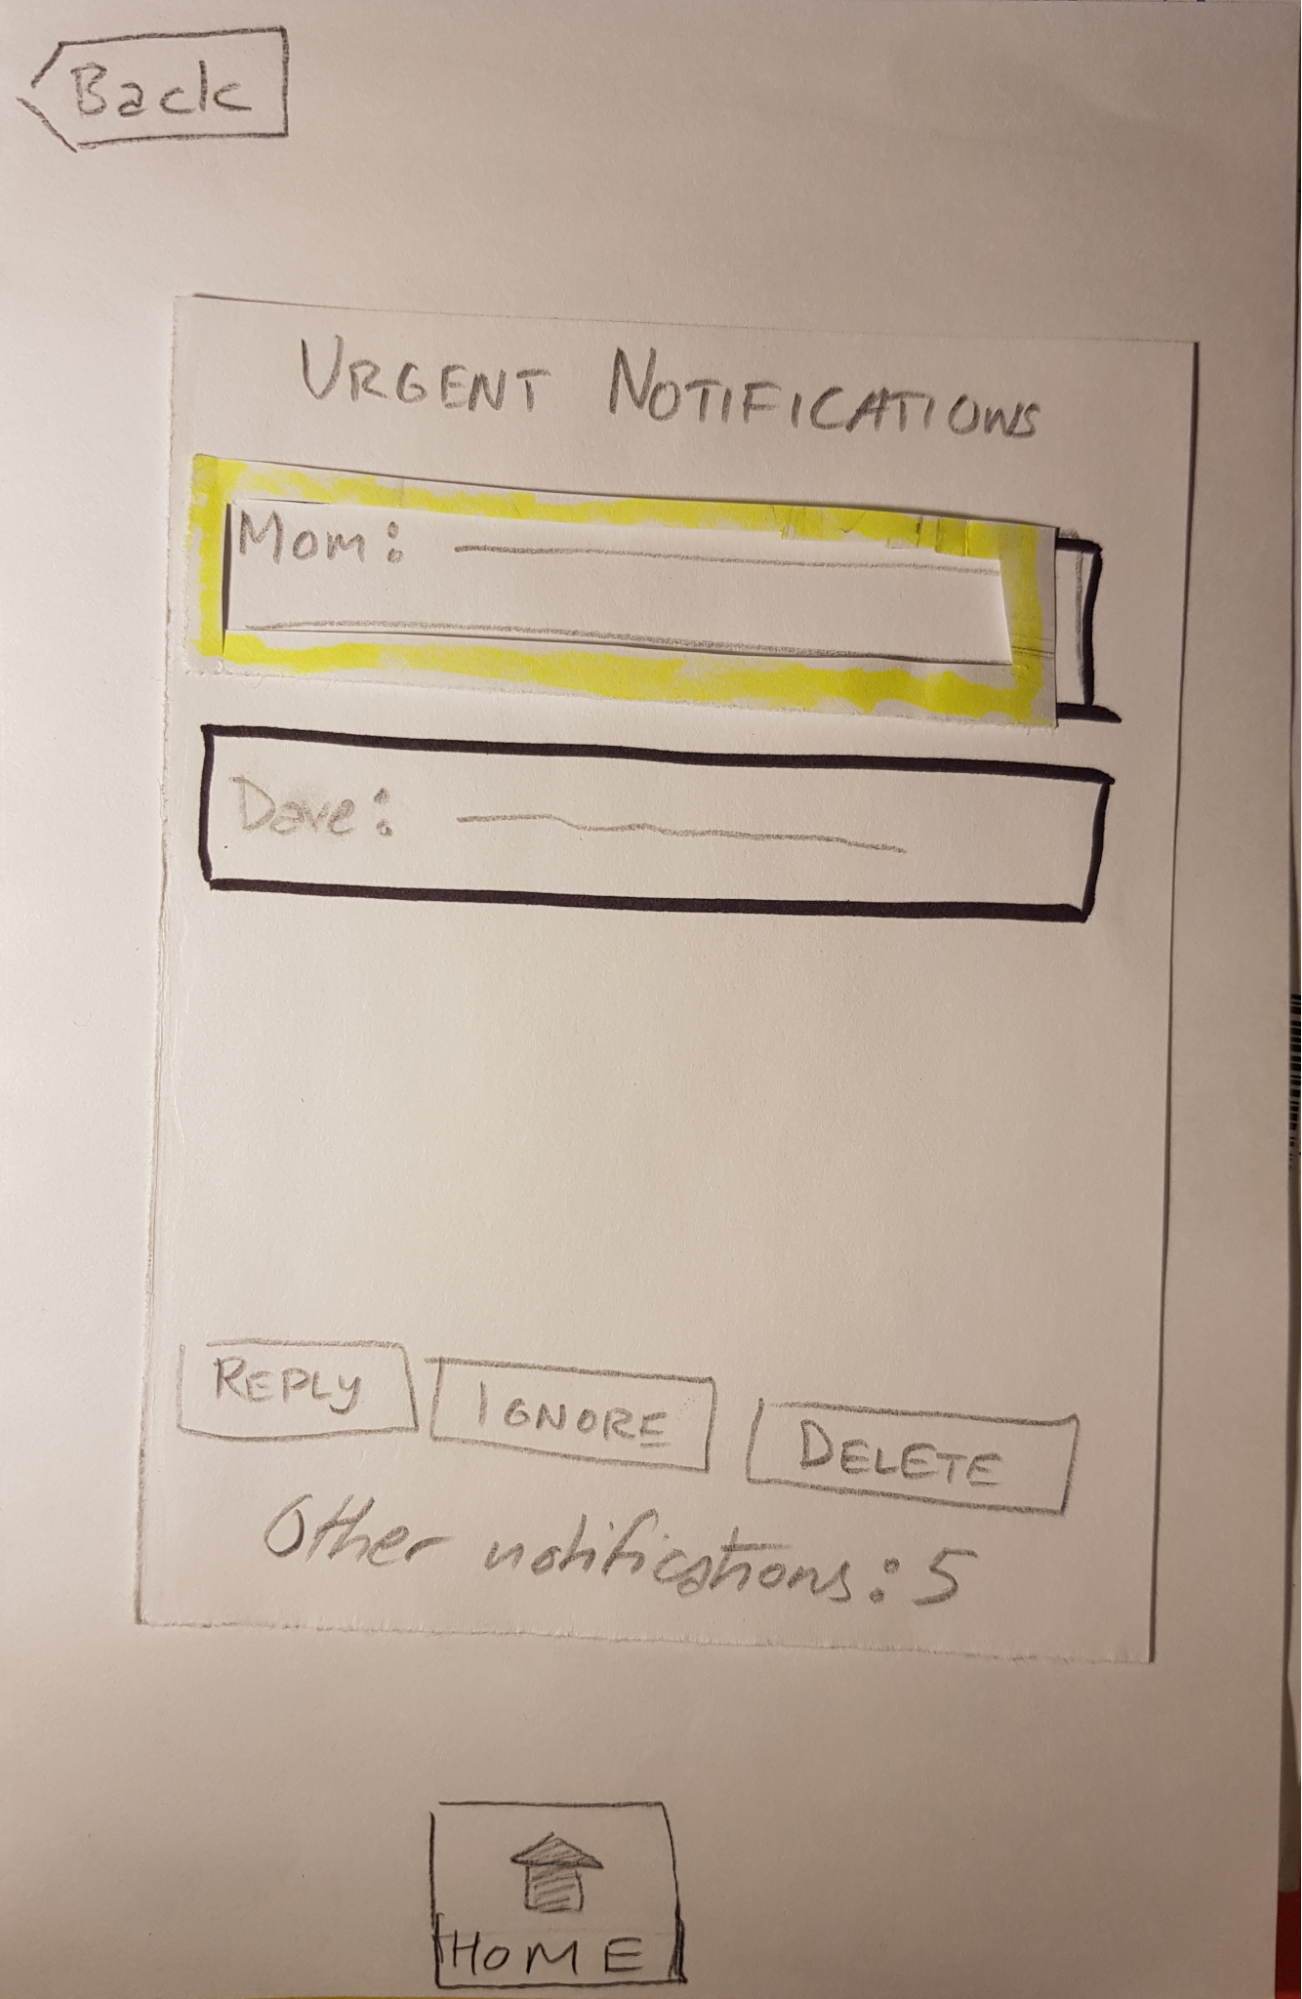 Back
URGENT NOTIFICATIONS
Mom:
Dave:
REPLY IGNORE DELETE
Other notifications: 5
HOME